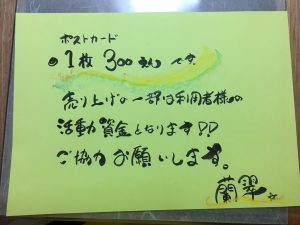 ポストカード
●1枚 300えん です。
売り上げの一部は利用者様の
活動資金となります!!
ご協力お願いします。
蘭翠